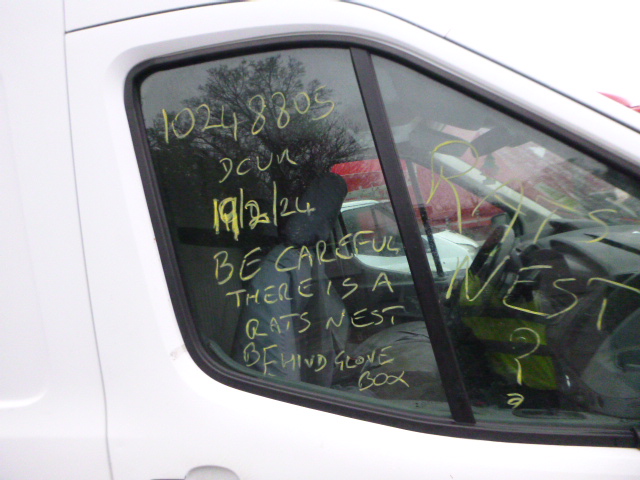 10248805
DCUR
19/2/24
BE CAREFUL
THERE IS A
RATS NEST
BEHIND GLOVE
BOX
RATS
NEST
?